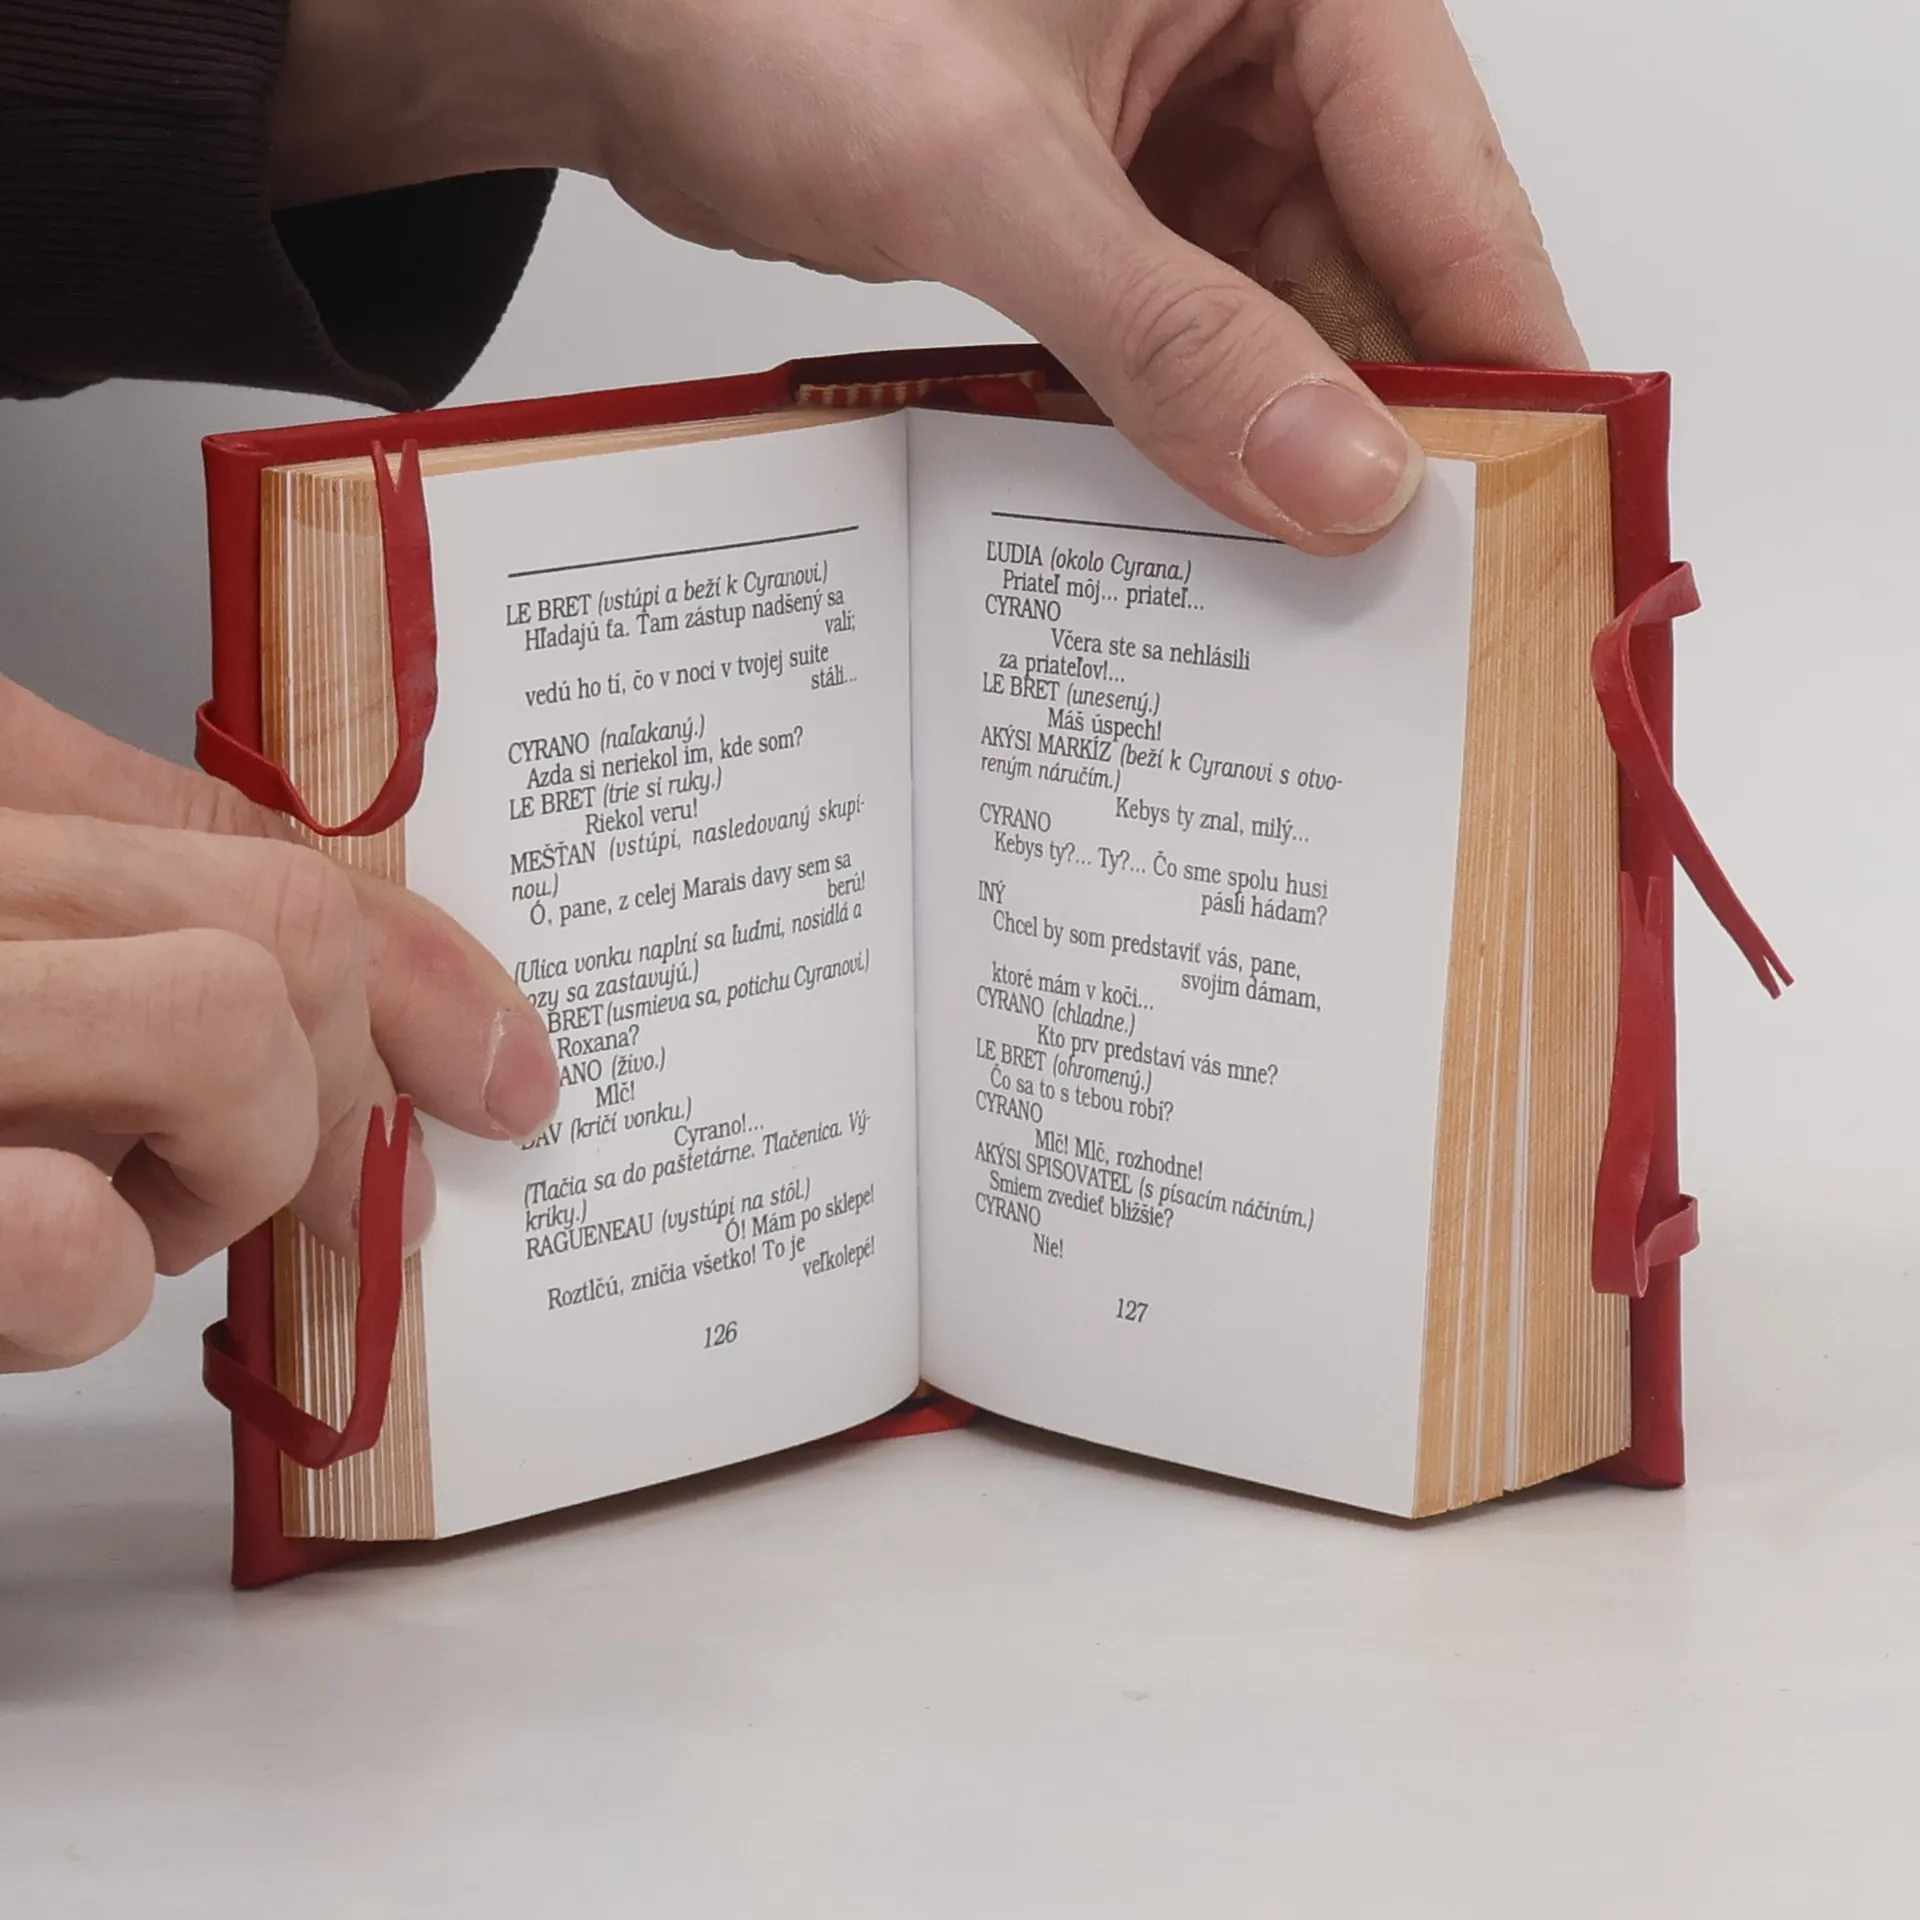 LE BRET (vstúpi a beží k Cyranovi.)
Hľadajú ťa. Tam zástup nadšený sa
valí;
vedú ho tí, čo v noci v tvojej suite
stáli...
CYRANO (naľakaný.)
Azda si neriekol im, kde som?
LE BRET (trie si ruky.)
Riekol veru!
MEŠŤAN (vstúpi, nasledovaný skupi-
nou.)
Ó, pane, z celej Marais davy sem sa
berú!
(Ulica vonku naplní sa ľuďmi, nosidlá a
ozy sa zastavujú.)
BRET (usmieva sa, potichu Cyranovi.)
Roxana?
ANO (živo.)
Mlč!
DAV (kričí vonku.)
Cyrano!...
(Tlačia sa do paštetárne. Tlačenica. Vý-
kriky.)
RAGUENEAU (vystúpi na stôl.)
Ó! Mám po sklepe!
Roztlčú, zničia všetko! To je
veľkolepé!
126
ĽUDIA (okolo Cyrana.)
Priateľ môj... priateľ...
CYRANO
Včera ste sa nehlásili
za priateľov!...
LE BRET (unesený.)
Máš úspech!
AKÝSI MARKÍZ (beží k Cyranovi s otvo-
reným náručím.)
Kebys ty znal, milý...
CYRANO
Kebys ty?... Ty?... Čo sme spolu husi
pásli hádam?
INÝ
Chcel by som predstaviť vás, pane,
svojim dámam,
ktoré mám v koči...
CYRANO (chladne.)
Kto prv predstaví vás mne?
LE BRET (ohromený.)
Čo sa to s tebou robí?
CYRANO
Mlč! Mlč, rozhodne!
AKÝSI SPISOVATEĽ (s písacím náčiním.)
Smiem zvedieť bližšie?
CYRANO
Nie!
127